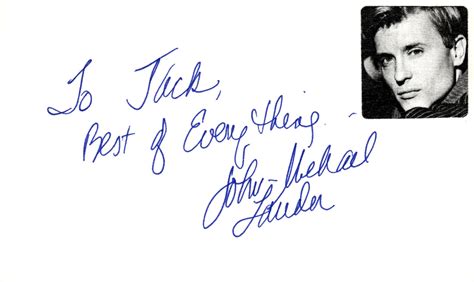 To Jack,
Best of Everything.
John-Michael
Lander